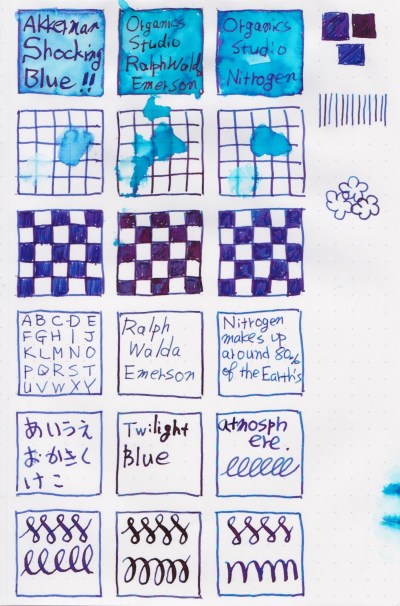 Akkerman
Shocking
Blue!!
Organics
Studio
Ralph Wald
Emerson
Organics
Studio
Nitrogen
ABCDE
FGHIJ
KLMNO
PQRST
UVWXY
Ralph
Walda
Emerson
Nitrogen
makes up
around 80%
of the Earth's
あいうえ
おかきく
けこ
Twilight
Blue
atmosph
ere.